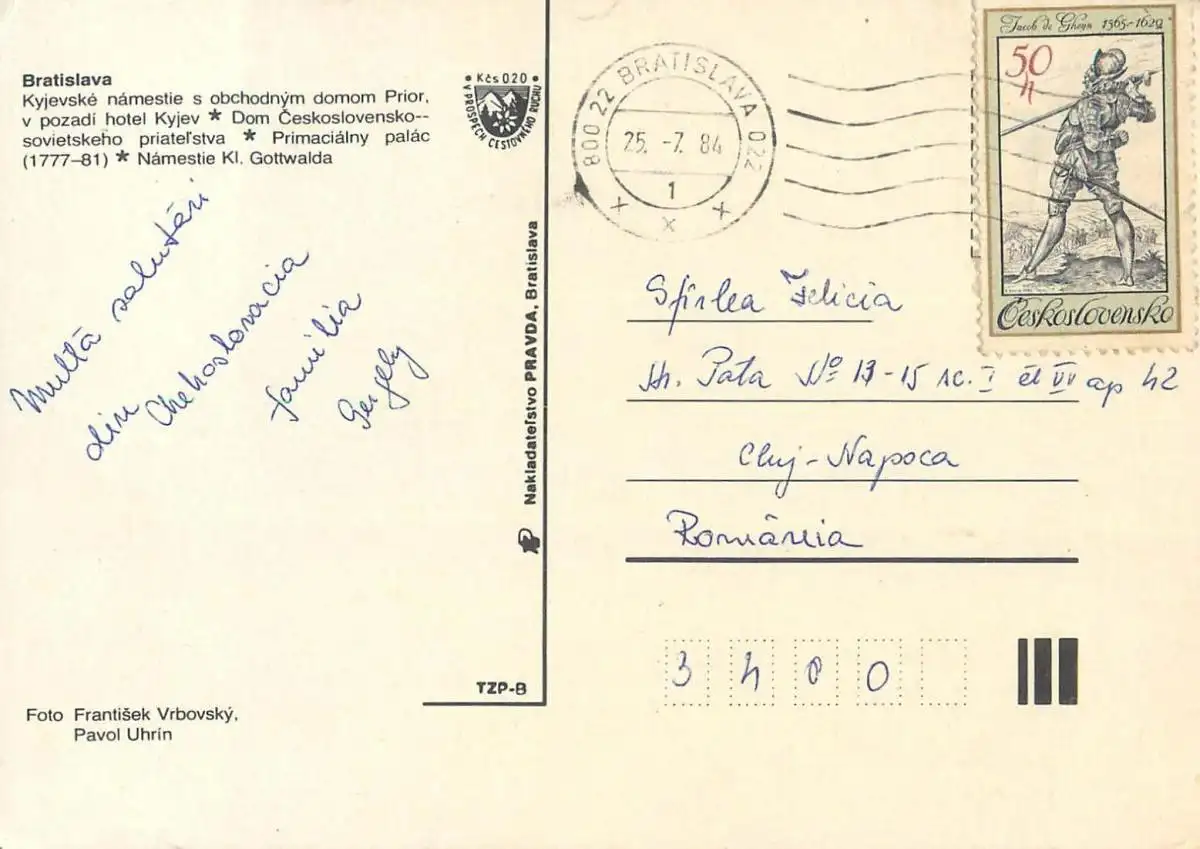 Bratislava
Kyjevské námestie s obchodným domom Prior,
v pozadí hotel Kyjev * Dom Československo--
sovietskeho priateľstva * Primaciálny palác
(1777–81) * Námestie Kl. Gottwalda
• Kčs 020 •
V PROSPECH CESTOVNÉHO RUCHU
Multă salutări
din Chehoslovacia
familia
Gergely
Nakladateľstvo PRAVDA, Bratislava
TZP-B
Foto František Vrbovský,
Pavol Uhrín
800 22 BRATISLAVA 022
25. -7. 84
1
x x x
Jacob de Gheyn 1565-1629
50
h
Československo
Sfîrlea Felicia
str. Pata No 13-15 sc. I et VI ap 42
Cluj-Napoca
România
3 4 0 0